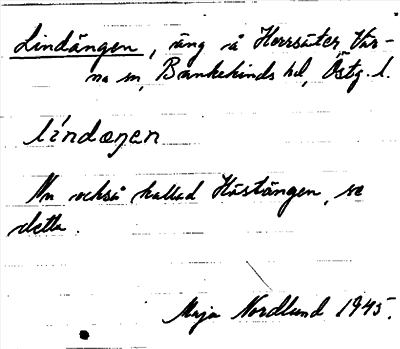 Lindängen, äng å Herrsäter Vår-
na sn, Bankekinds hd, Östg. l.
líndæŋen
Nu också kallad Hästängen, se
detta.
Maja Nordlund 1945.